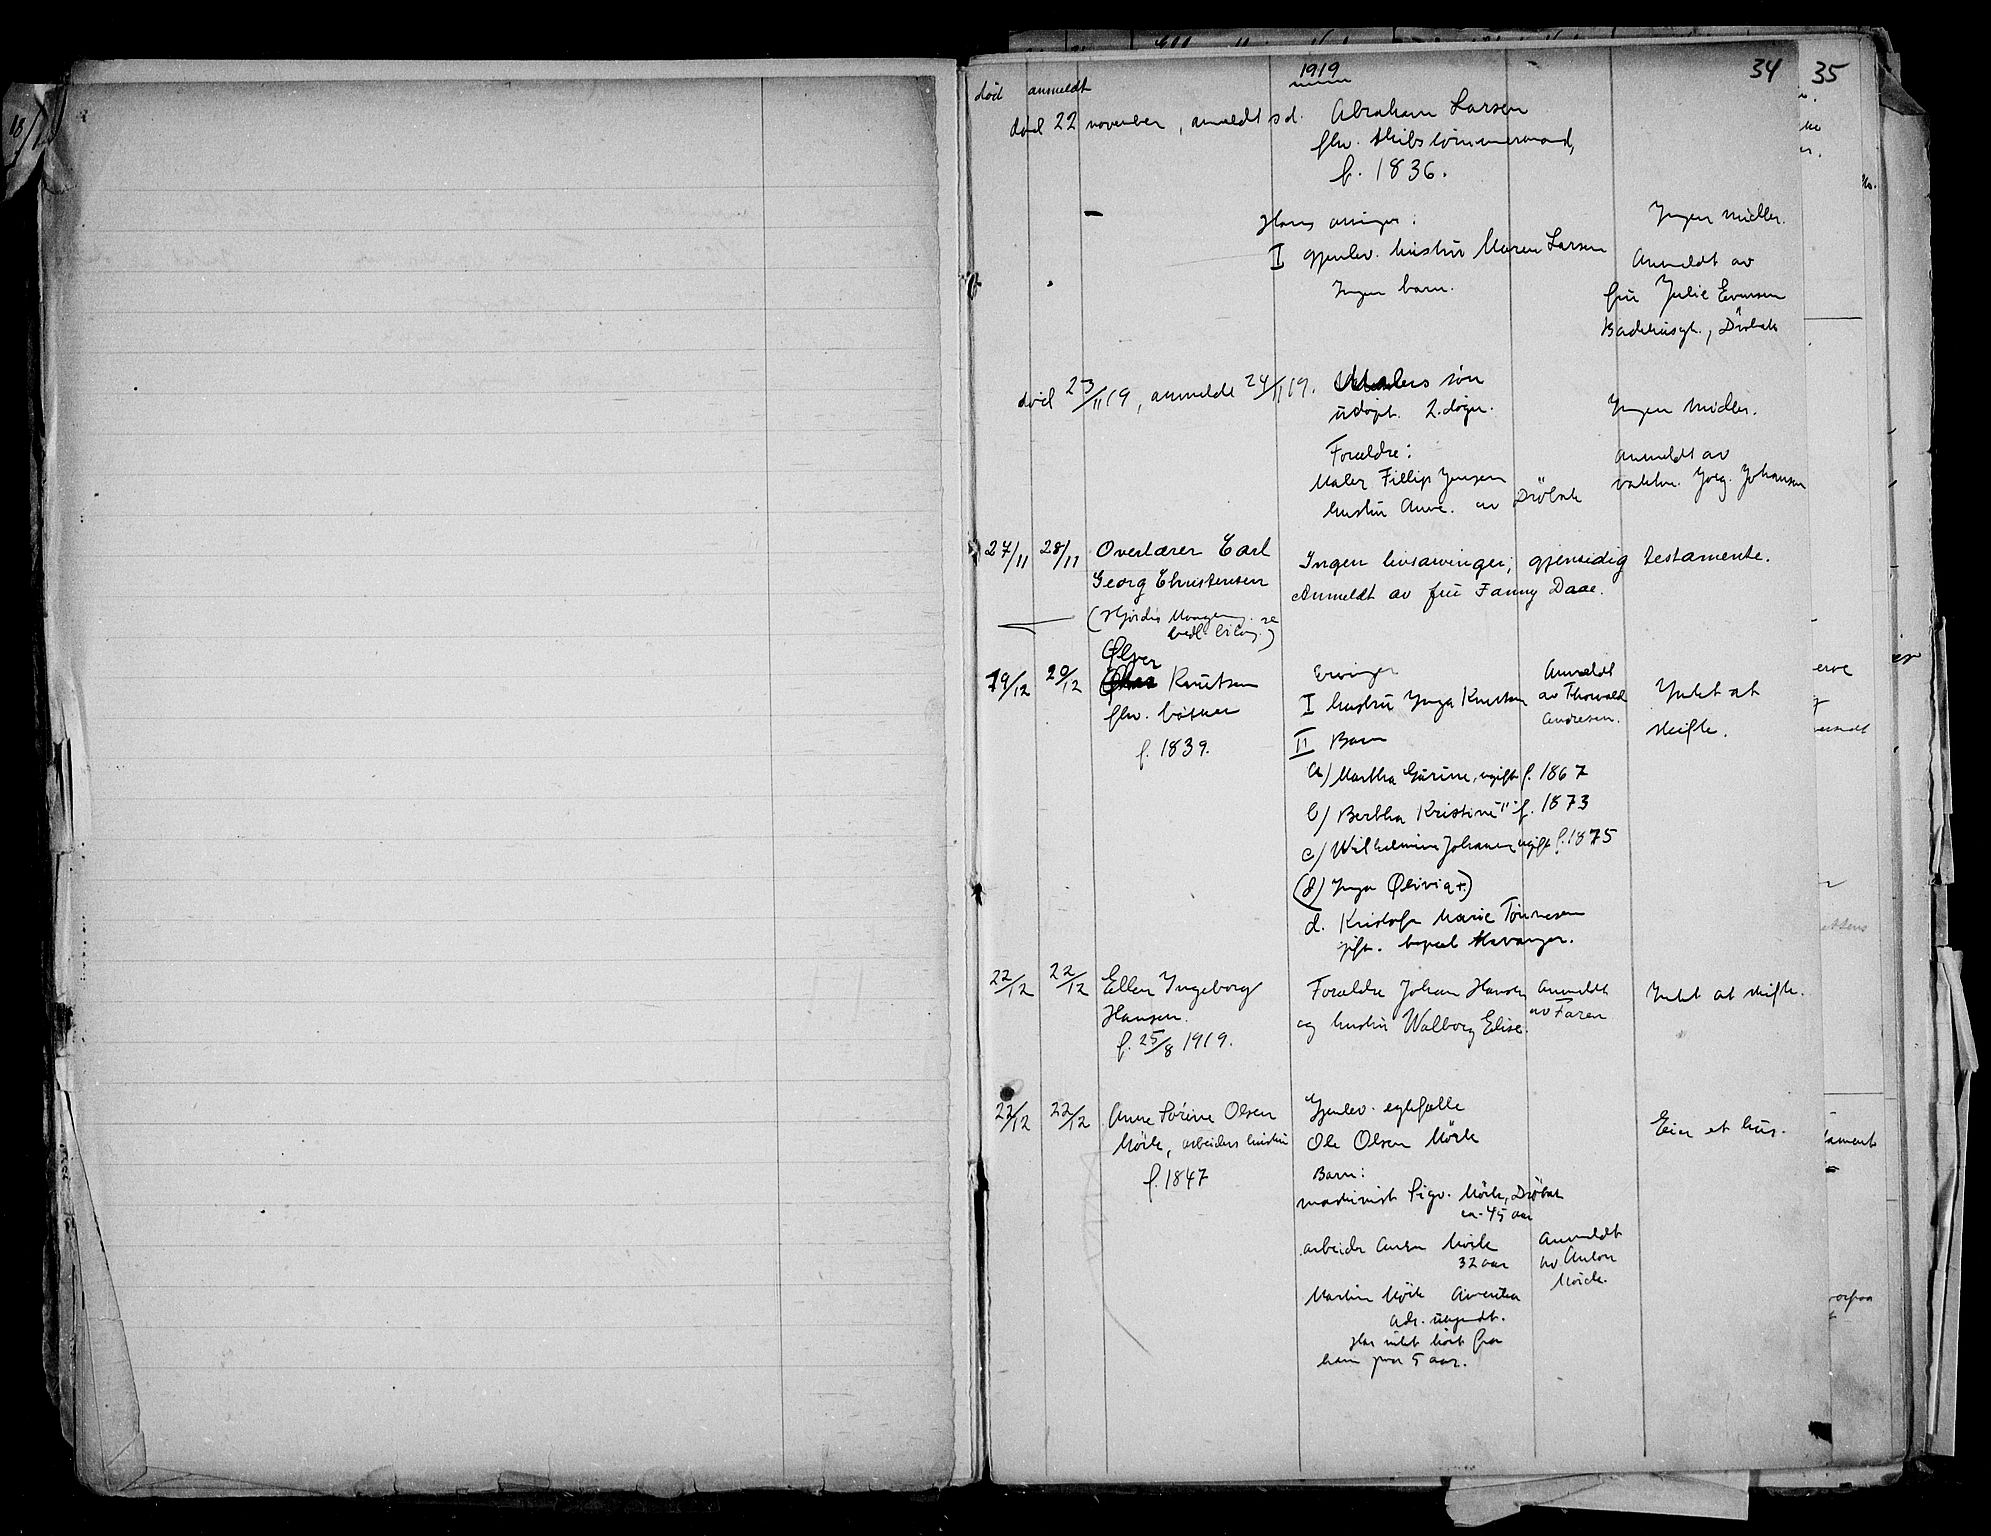 1919
34
35
død anmeldt
død 22 november, anmeldt s d. Abraham Larsen
fhv. skibstømmermand,
f. 1836.
Hans arvinger:
Ingen midler.
I gjenlev. hustru Maren Larsen
Ingen barn.
Anmeldt av
fru Julie Evensen
Badehusgt., Drøbak
død 23/11 19, anmeldt 24/11 19.
søn
udøpt. 2. døgn.
Ingen midler.
Forældre:
Maler Fillip Jensen
hustru Anne. av Drøbak
Anmeldt av
Johansen
27/11 28/11 Overlærer Carl
Georg Christensen
Ingen livsarvinger; gjensidig testamente.
Anmeldt av frue Fanny Daae.
(Hjørdis se
vedl. bilag.)
Ølver
19/12 20/12 Knutsen
fhv. bøtker
f. 1839.
Arvinger
I hustru Inga Knutsen
II Barn
a/ Martha Gurine, ugift f. 1867
b/ Bertha Kristine -"- f. 1873
c/ Wilhelmine Johanne ugift f. 1875
(d/ Inga Olivia +.)
d. Marie Tønnesen
gift. bopæl Stavanger.
Anmeldt
av Thorvald
Andresen.
Intet at
skifte.
22/12 22/12 Ellen Ingeborg
Hansen.
f. 25/8 1919.
Forældre Johan Hansen
og hustru Walborg Elise.
Anmeldt
av Faren
Intet at skifte.
22/12 22/12 Anne Sørine Olsen
Mörk, arbeiders hustru
f. 1847
Gjenlev. egtefælle
Ole Olsen Mörk
Barn:
maskinist Sigv. Mörk, Drøbak
ca. 45 aar
arbeider Anton Mörk
32 aar
Martin Mörk Amerika
adr. ukjendt.
Har intet hørt fra
ham paa 5 aar.
Anmeldt
av Anton
Mörk.
Eier et hus.